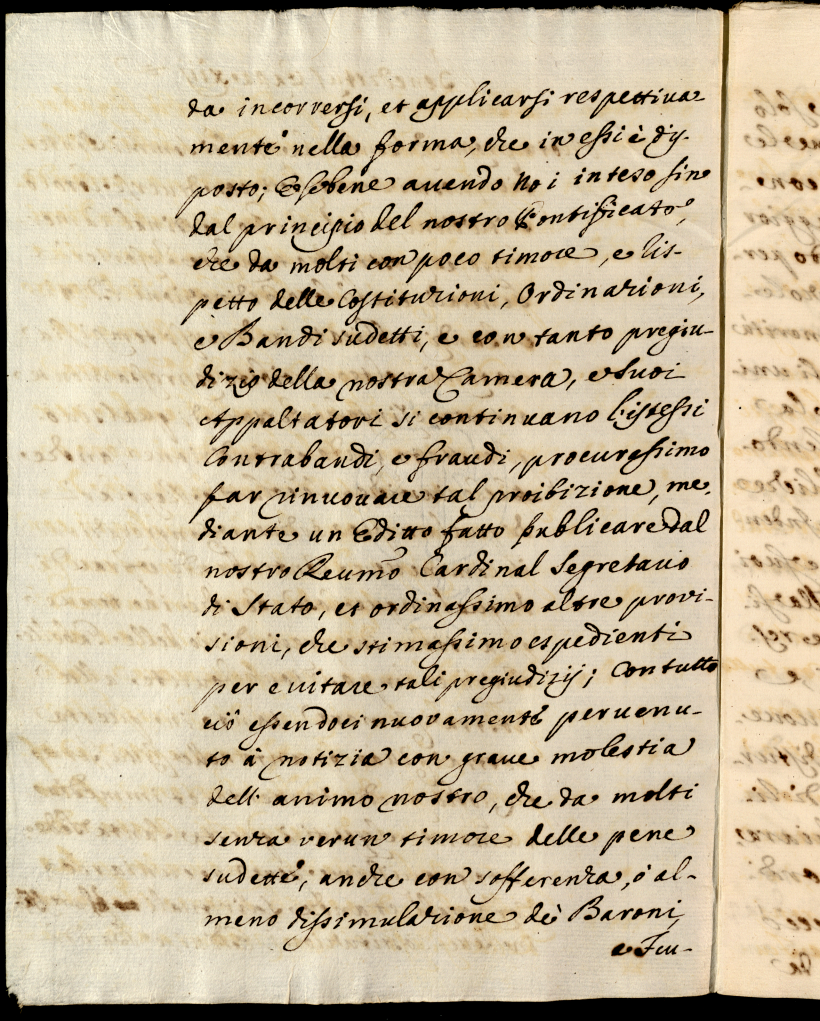 da incorrersi, et applicarsi respettiua
mente nella forma, che in essi è dis-
posto; E sebene auendo Noi inteso sin
dal principio del nostro Pontificato,
che da molti con poco timore, e ris-
petto delle Costituzioni, Ordinazioni,
e Bandi sudetti, e con tanto pregiu-
dizio della nostra Camera, e suoi
Appaltatori si continuano l'istessi
Contrabandi, e fraudi, procurassimo
far rinuouare tal proibizione, me-
diante un Editto fatto publicare dal
nostro Reumo Cardinal Segretario
di Stato, et ordinassimo altre provi-
sioni, che stimassimo espedienti
per euitare tali pregiudizij; Con tutto
ciò essendoci nuovamente peruenu-
to à notizia con graue molestia
dell'animo nostro, che da molti
senza verun timore delle pene
sudette, anche con sofferenza, ò al-
meno dissimulazione dè Baroni,
e Feu-